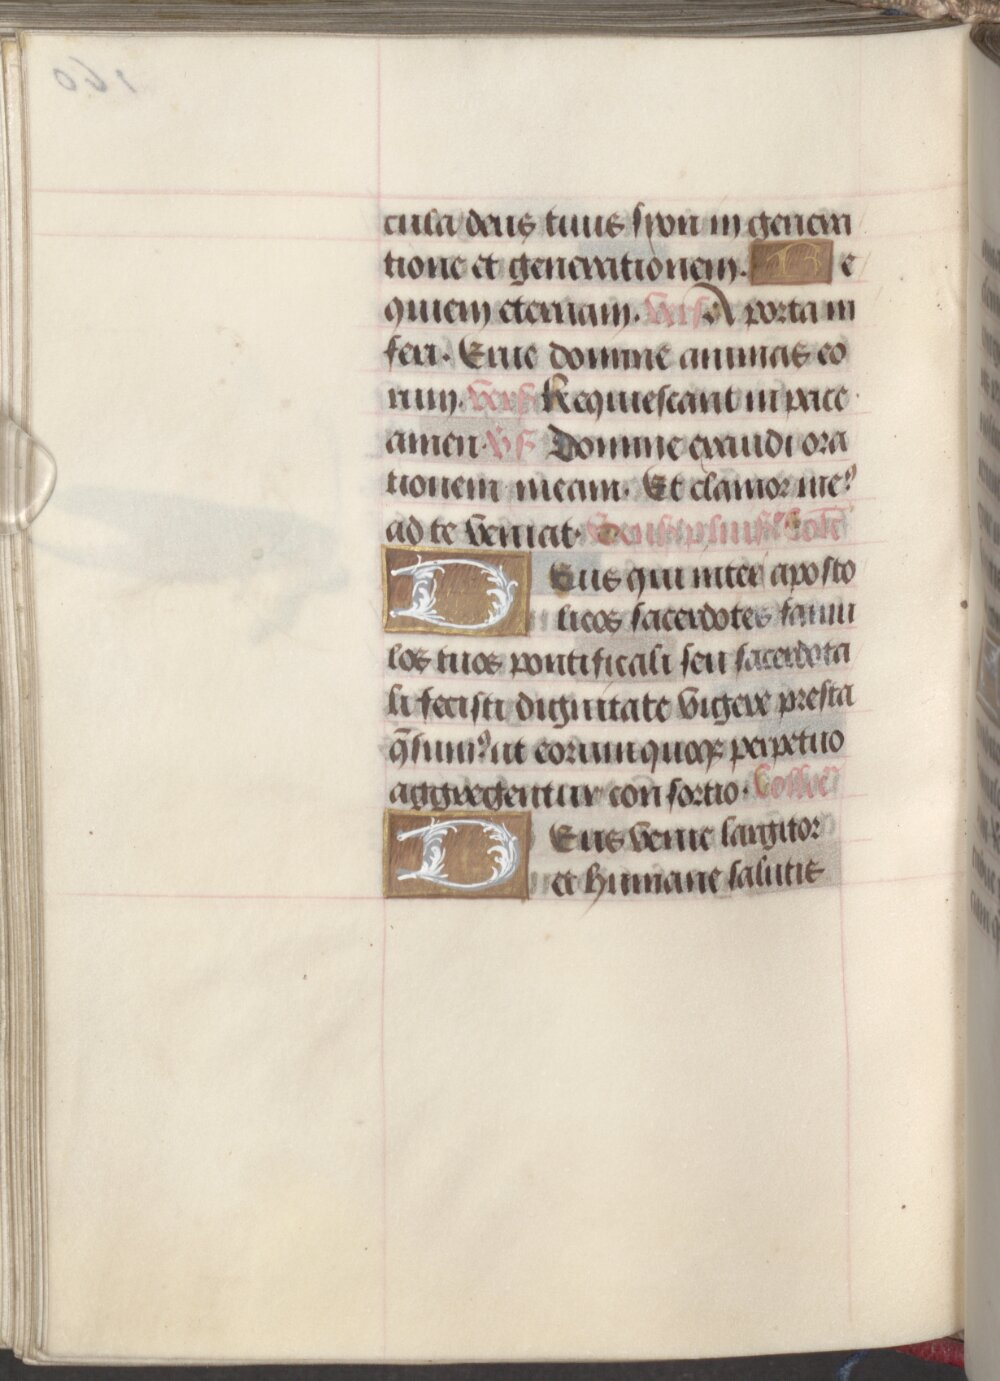 cula deus tuus syon in genera
tione et generationem. Re
quiem eternam. Vers. A porta in
feri. Erue domine animas eo
rum. Vers. Requiescant in pace
amen. Vs. Domine exaudi ora
tionem meam. Et clamor meꝰ
ad te veniat.
Deus qui inter aposto
licos sacerdotes famu
los tuos pontificali seu sacerdota
li fecisti dignitate vigere presta
q̄sumꝰ ut eorum quoqꝫ perpetuo
aggregentur consortio.
Deus venie largitor
et humane salutis